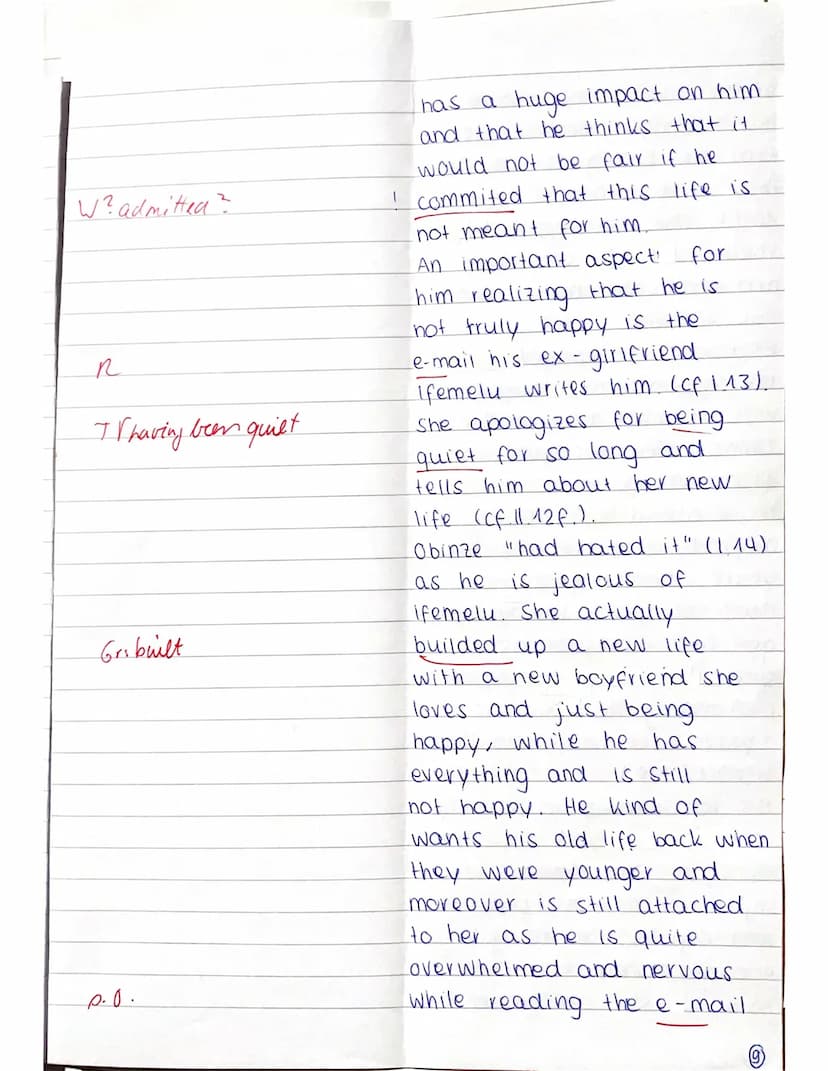 has a huge impact on him
and that he thinks that it
would not be fair if he
W? admitted? ! commited that this life is
not meant for him.
An important aspect for
him realizing that he is
not truly happy is the
R e-mail his ex-girlfriend
ifemelu writes him (cf l.13).
T Γ having been quiet She apologizes for being
quiet for so long and
tells him about her new
life (cf. ll. 12f.).
Obinze "had hated it" (l.14)
as he is jealous of
ifemelu. She actually
Gr: built builded up a new life
with a new boyfriend she
loves and just being
happy, while he has
everything and is still
not happy. He kind of
wants his old life back when
they were younger and
moreover is still attached
to her as he is quite
overwhelmed and nervous
p.o. while reading the e-mail
9